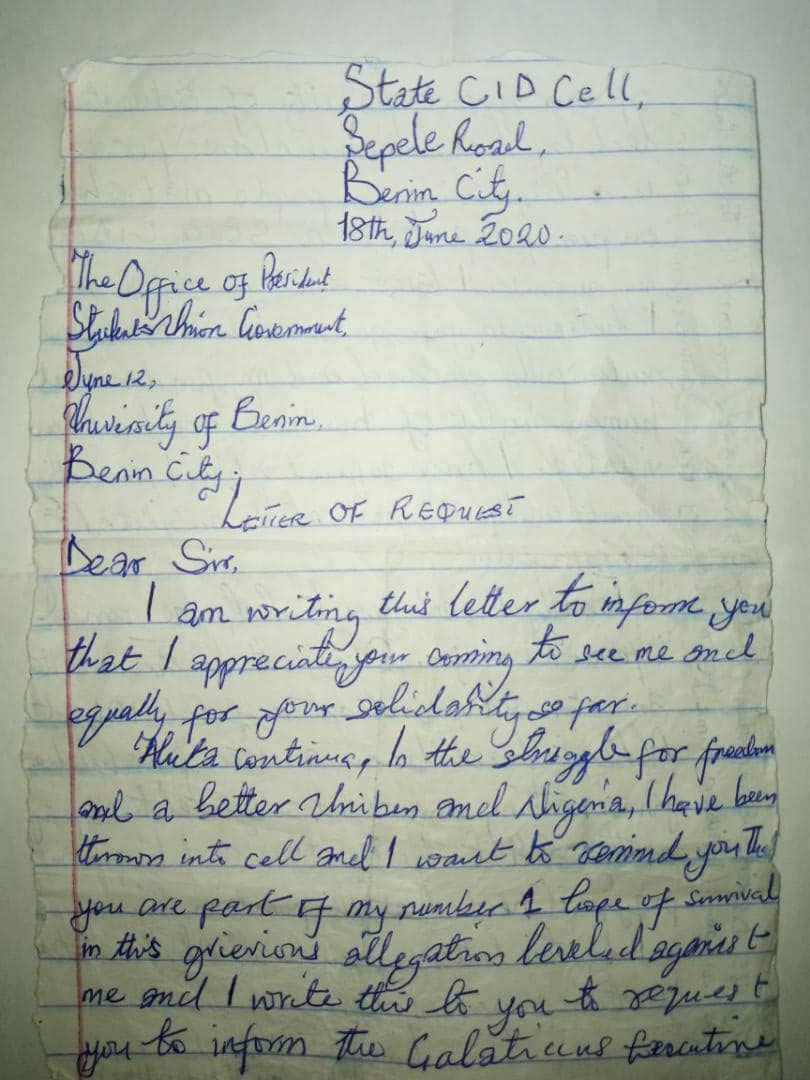 State CID Cell,
Sepele Road,
Benin City.
18th, June 2020.
The Office of President
Students Union Government,
June 12,
University of Benin,
Benin City;
LETTER OF REQUEST
Dear Sir,
I am writing this letter to inform you
that I appreciate your coming to see me and
equally for your solidarity so far.
Aluta continua, In the struggle for freedom
and a better Uniben and Nigeria, I have been
thrown into cell and I want to remind you that
you are part of my number 1 hope of survival
in this grievious allegation leveled against
me and I write this to you to request
you to inform the Galaticus Executive